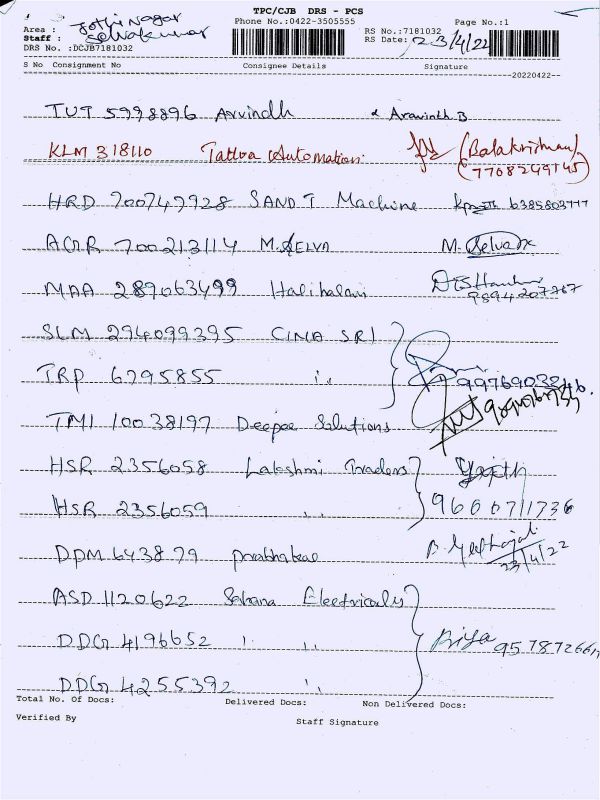 TPC/CJB DRS - PCS
Area : Jothi Nagar Phone No.:0422-3505555 Page No.:1
Staff : Selvakumar RS No.:7181032
DRS No. :DCJB7181032 RS Date: 23/4/22
S No Consignment No Consignee Details Signature
20220422
TUT 5998896 Arvindh Aravinth B
KLM 318110 Tattva Automation (Balakrishnan)
7708249145
HRD 700747928 SAND T Machine 6385803777
AGR 700213114 M. SELVA M. Selva
MAA 289063499 Halihalam
9894207767
SLM 294099395 CIMA SRI
TRP 6795855 ,,
TMI 10038197 Deepee Solutions
HSR 2356058 Lakshmi Traders
HSR 2356059 ,, 9600711736
DPM 643879 Prabhakar B. Geethajali
23/4/22
ASD 1120622 Sahana Electricals
DDG 4196652 ,, ,, Priya
DDG 4255392 ,,
Total No. Of Docs: Delivered Docs: Non Delivered Docs:
Verified By Staff Signature